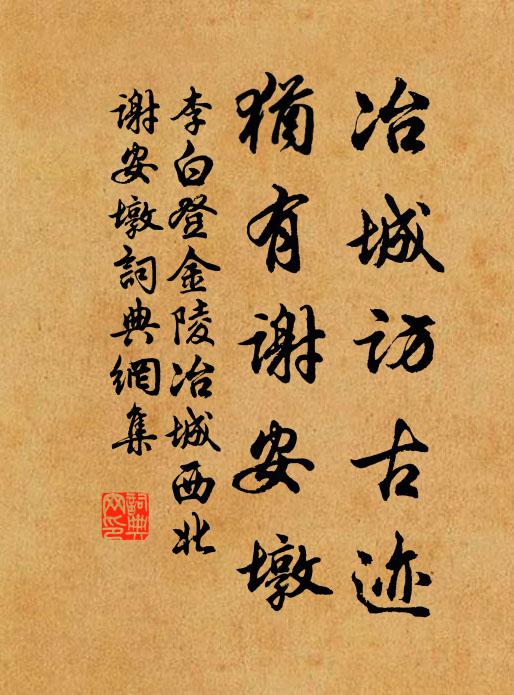 冶城访古迹
猶有谢安墩
李白登金陵冶城西北
谢安墩詞典網集
詞典
网印